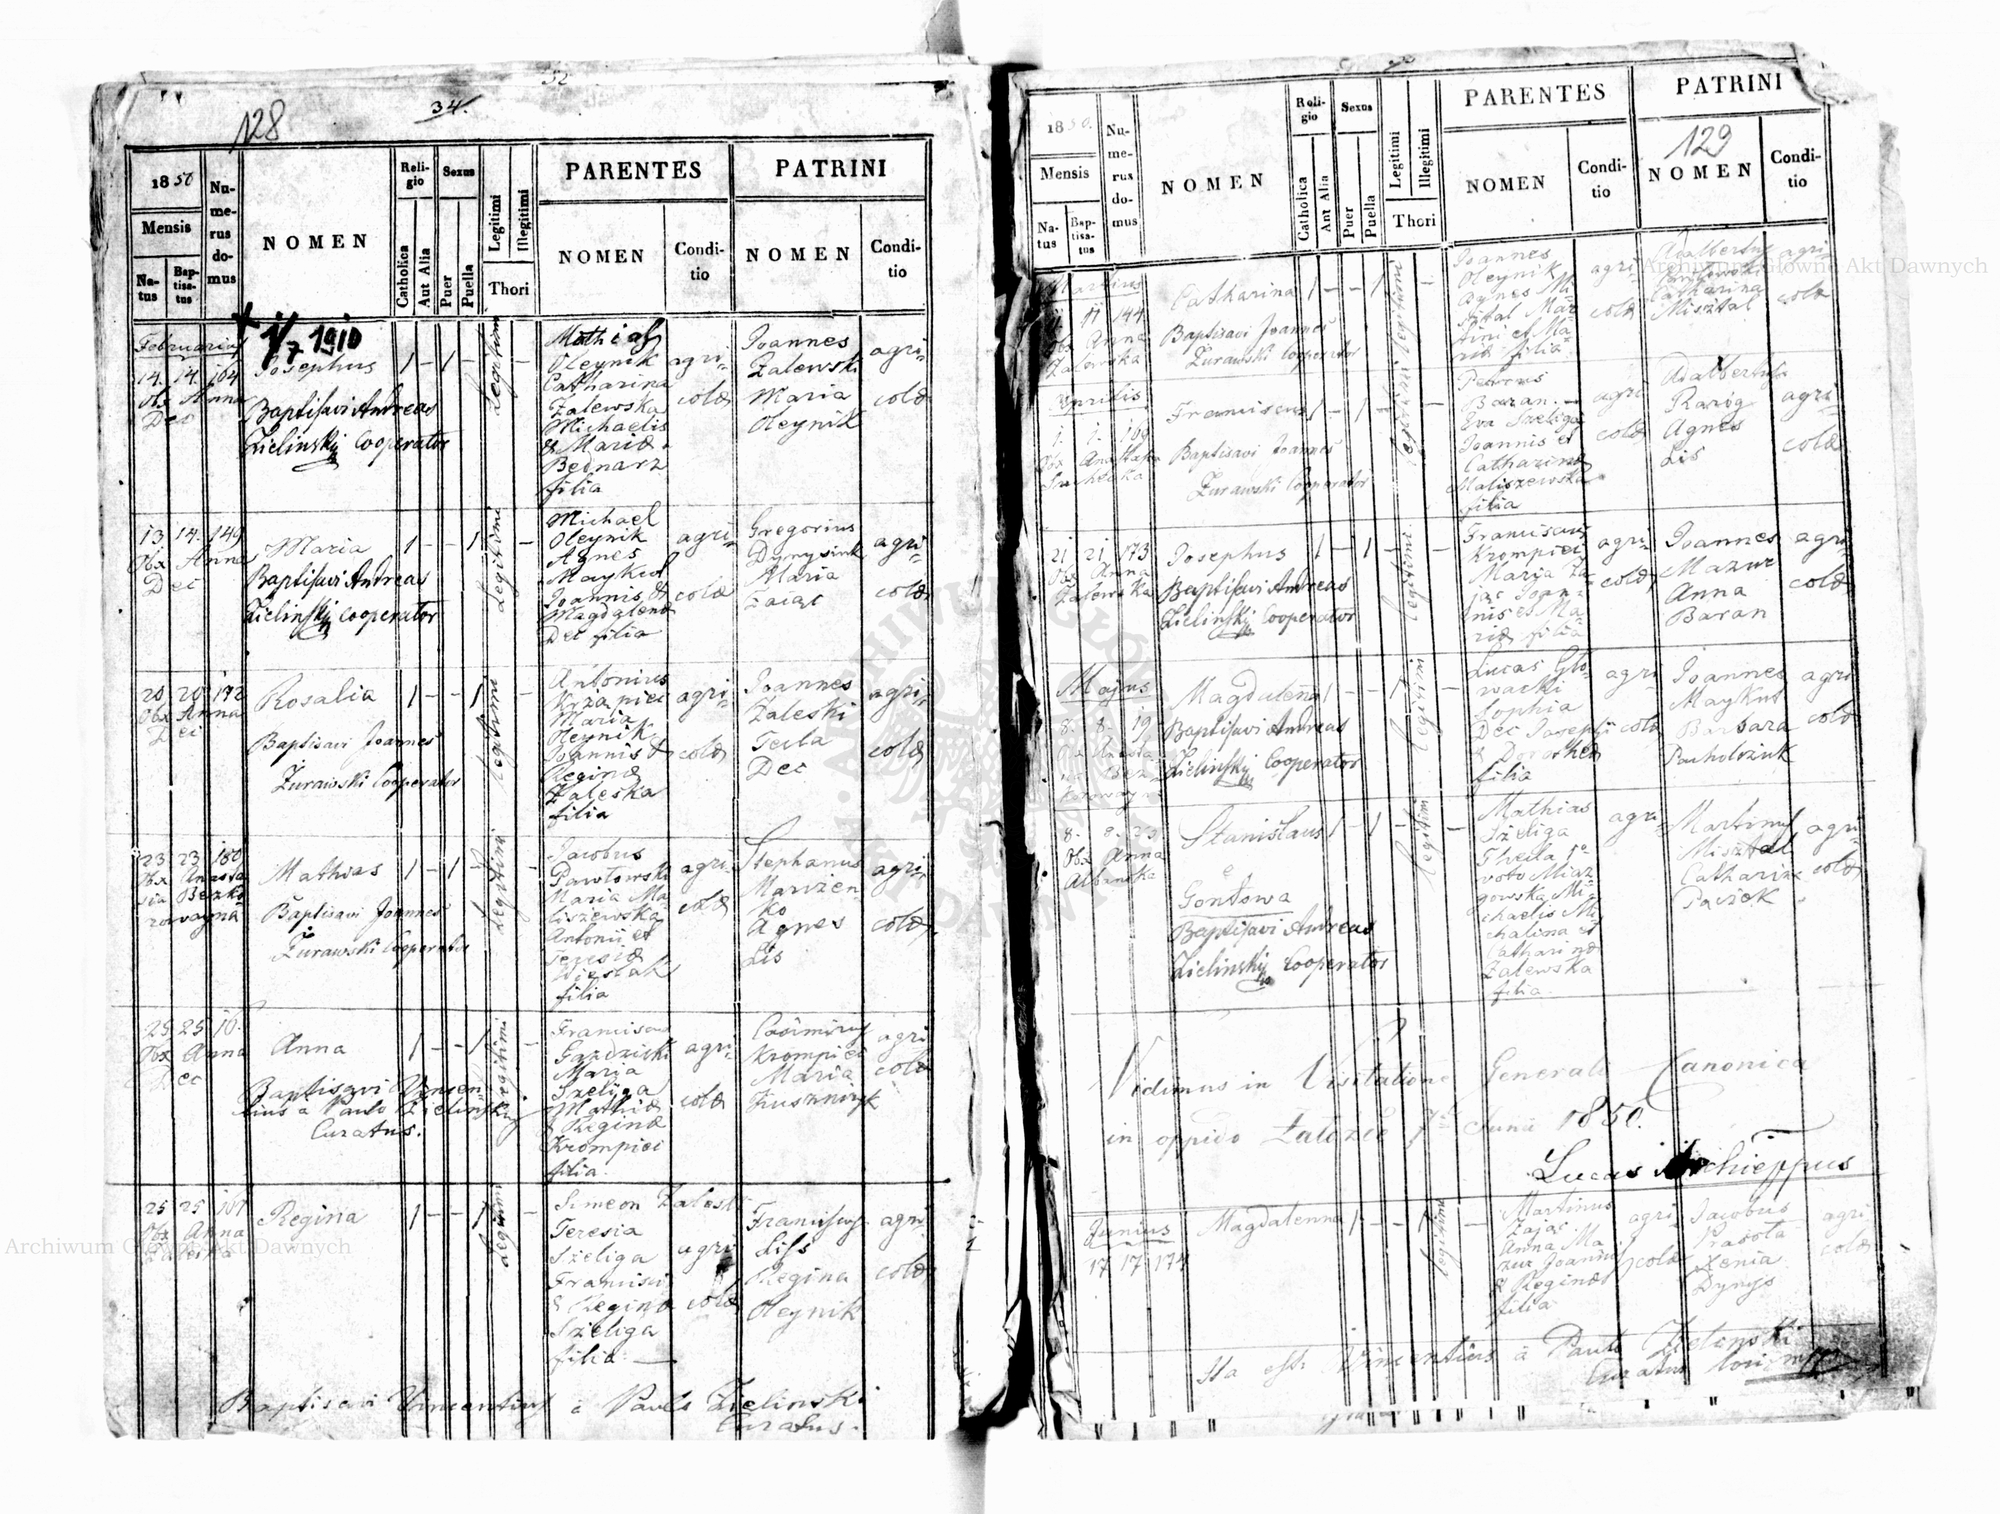 128
34.
1850
Mensis
Na-
tus
Bap-
tisa-
tus
Nu-
me-
rus
do-
mus
NOMEN
Reli-
gio
Catholica
Aut Alia
Sexus
Puer
Puella
Legitimi
Illegitimi
Thori
PARENTES
NOMEN
Condi-
tio
PATRINI
NOMEN
Condi-
tio
Februarius
14. 14. 164
Obx Anna
Dec
1/7 1910
Josephus
Baptisavi Andreas
Zielinski Cooperator
1 - 1 -
Legitimi
Mathias
Oleynik
Catharina
Zalewska
Michaelis
& Mariæ
Bednarz
filia
agri-
colæ
Joannes
Zalewski
Maria
Oleynik
agri-
colæ
13 14. 149
Obx Anna
Dec
Maria
Baptisavi Andreas
Zielinski Cooperator
1 - - 1
Legitimi
Michael
Oleynik
Agnes
Maykut
Joannis &
Magdalenæ
Dec filia
agri-
colæ
Gregorius
Maria
Zaiąc
agri-
colæ
20 20 172
Obx Anna
Dec
Rosalia
Baptisavi Joannes
Żurawski Cooperator
1 - - 1
Legitimi
Antonius
Maria
Oleynik
Joannis &
Reginæ
Zaleska
filia
agri-
colæ
Joannes
Zaleski
Tecla
Dec
agri-
colæ
23 23 180
Obx Anasta
sia Bezko
rowayna
Mathias
Baptisavi Joannes
Żurawski Cooperator
1 - 1 -
Legitimi
Jacobus
Pawłowski
Maria Ma
liszewska
Antonii et
Teresiæ
filia
agri-
colæ
Stephanus
Marizen-
ko
Agnes
Lis
agri-
colæ
25 25 10.
Obx Anna
Dec
Anna
Baptisavi Vincen
tius a Paulo Zielinski
Curatus.
1 - - 1
Legitimi
Franciscus
Maria
Szeliga
Mathiæ
& Reginæ
Krompiec
filia.
agri-
colæ
Casimirus
Krompiec
Maria
agri-
colæ
25 25 187
Obx Anna
Regina
1 - - 1
Legitimi
Simeon Zaleski
Teresia
Szeliga
Francisci
& Reginæ
Szeliga
filia.
agri
colæ
Franciscus
Liss
Regina
Oleynik
agri-
colæ
Baptisavi Vincentius à Paulo Zielinski
Curatus.
1850.
Mensis
Na-
tus
Bap-
tisa-
tus
Nu-
me-
rus
do-
mus
NOMEN
Reli-
gio
Catholica
Aut Alia
Sexus
Puer
Puella
Legitimi
Illegitimi
Thori
PARENTES
NOMEN
Condi-
tio
PATRINI
129
NOMEN
Condi-
tio
Martius
11 11 144
Obx Anna
Zalewska
Catharina
Baptisavi Joannes
Żurawski Cooperator
1 - - 1
Legitimi
Joannes
Oleynik
Agnes Mi
sztal Mar
tini et Ma
riæ filia
agri
colæ
Adalbertus
Catharina
Misztal
agri-
colæ
Aprilis
1. 1. 169
Obx Anastasia
Franciscus
Baptisavi Joannes
Żurawski Cooperator
1 - 1 -
Legitimi
Petrus
Baran.
Eva Szeliga
Joannis et
Catharinæ
Maliszewska
filia
agri
colæ
Adalbertus
Raróg
Agnes
Lis
agri-
colæ
21 21 173
Obx Anna
Zalewska
Josephus
Baptisavi Andreas
Zielinski Cooperator
1 - 1 -
Legitimi
Franciscus
Krompiec
Maria Za
jąc Joan-
nis et Ma
riæ filia
agri-
colæ
Joannes
Mazur
Anna
Baran
agri-
colæ
Majus
8. 8. 19
Magdalena
Baptisavi Andreas
Zielinski Cooperator
1 - - 1
Legitimi
Lucas Gło
wacki
Sophia
Dec Josephi
& Dorotheæ
filia
agri-
colæ
Joannes
Maykut
Barbara
agri
colæ
8. 8. 23
Obx Anna
Albanska
Stanislaus
e
Gontowa
Baptisavi Andreas
Zielinski Cooperator
1 - 1 -
Legitimi
Mathias
Szeliga
Thecla 1º
voto Miaz-
gowska Mi-
chaelis Mi-
chalina et
Catharinæ
Zalewska
filia.
agri-
Martinus
Misztal
Catharina
agri-
colæ
Vidimus in Visitatione Generali Canonica
in oppido Załozce 7 Junii 1850.
Lucas Archieppus
Junius
17 17 174
Magdalenna
1 - - 1
Legitimi
Martinus
Zając
Anna Ma
zur Joannis
& Reginæ
filia
agri
colæ
Jacobus
Prasota
Xenia
Dynys
agri
colæ
Ita est. Vincentius à Paulo Zielinski
Curatus loci
Archiwum Główne Akt Dawnych
Archiwum Główne Akt Dawnych
ARCHIWUM GŁÓWNE AKT DAWNYCH